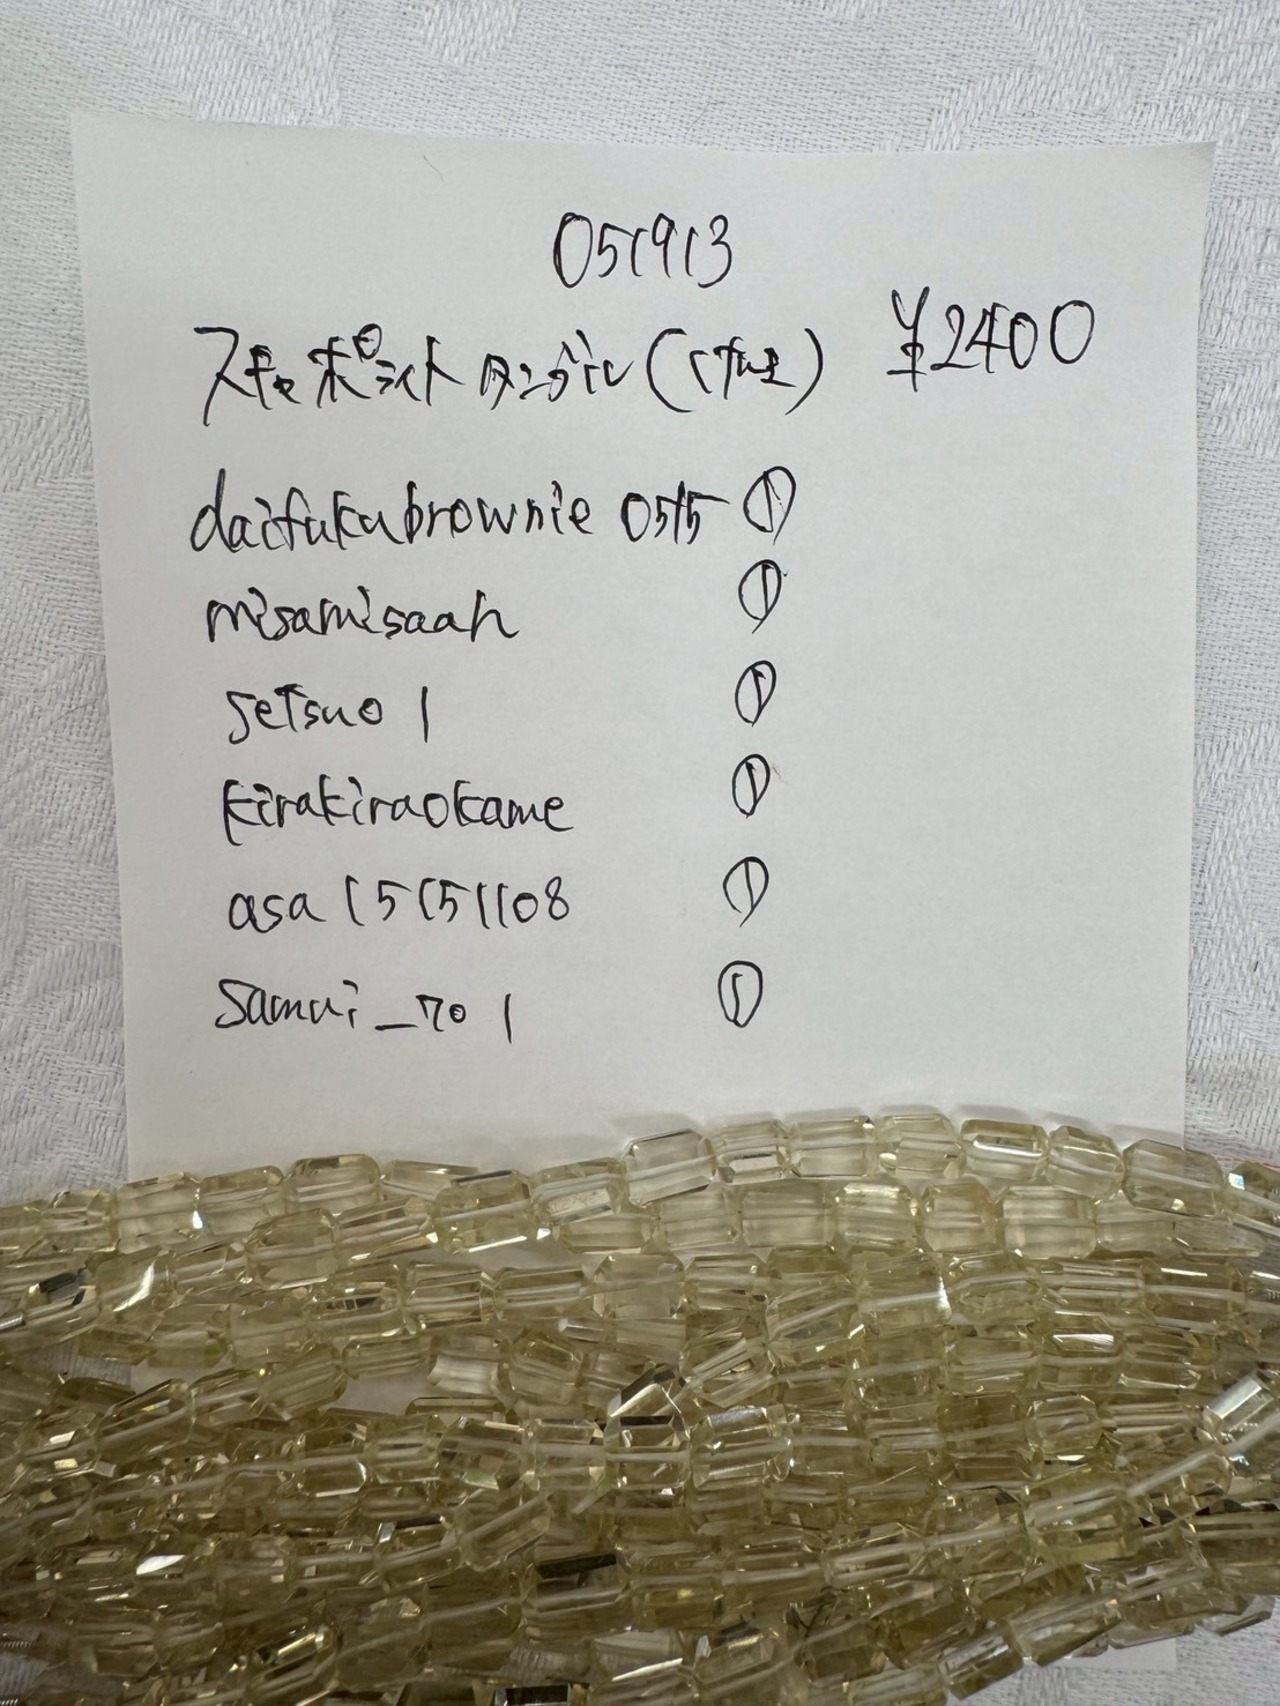 051913
スキャポライト タンブル ( ¥2400
daifukubrownie 0515 ①
misamisaah ①
setsuo 1 ①
kirakiraokame ①
asa 15151108 ①
samui_701 ①